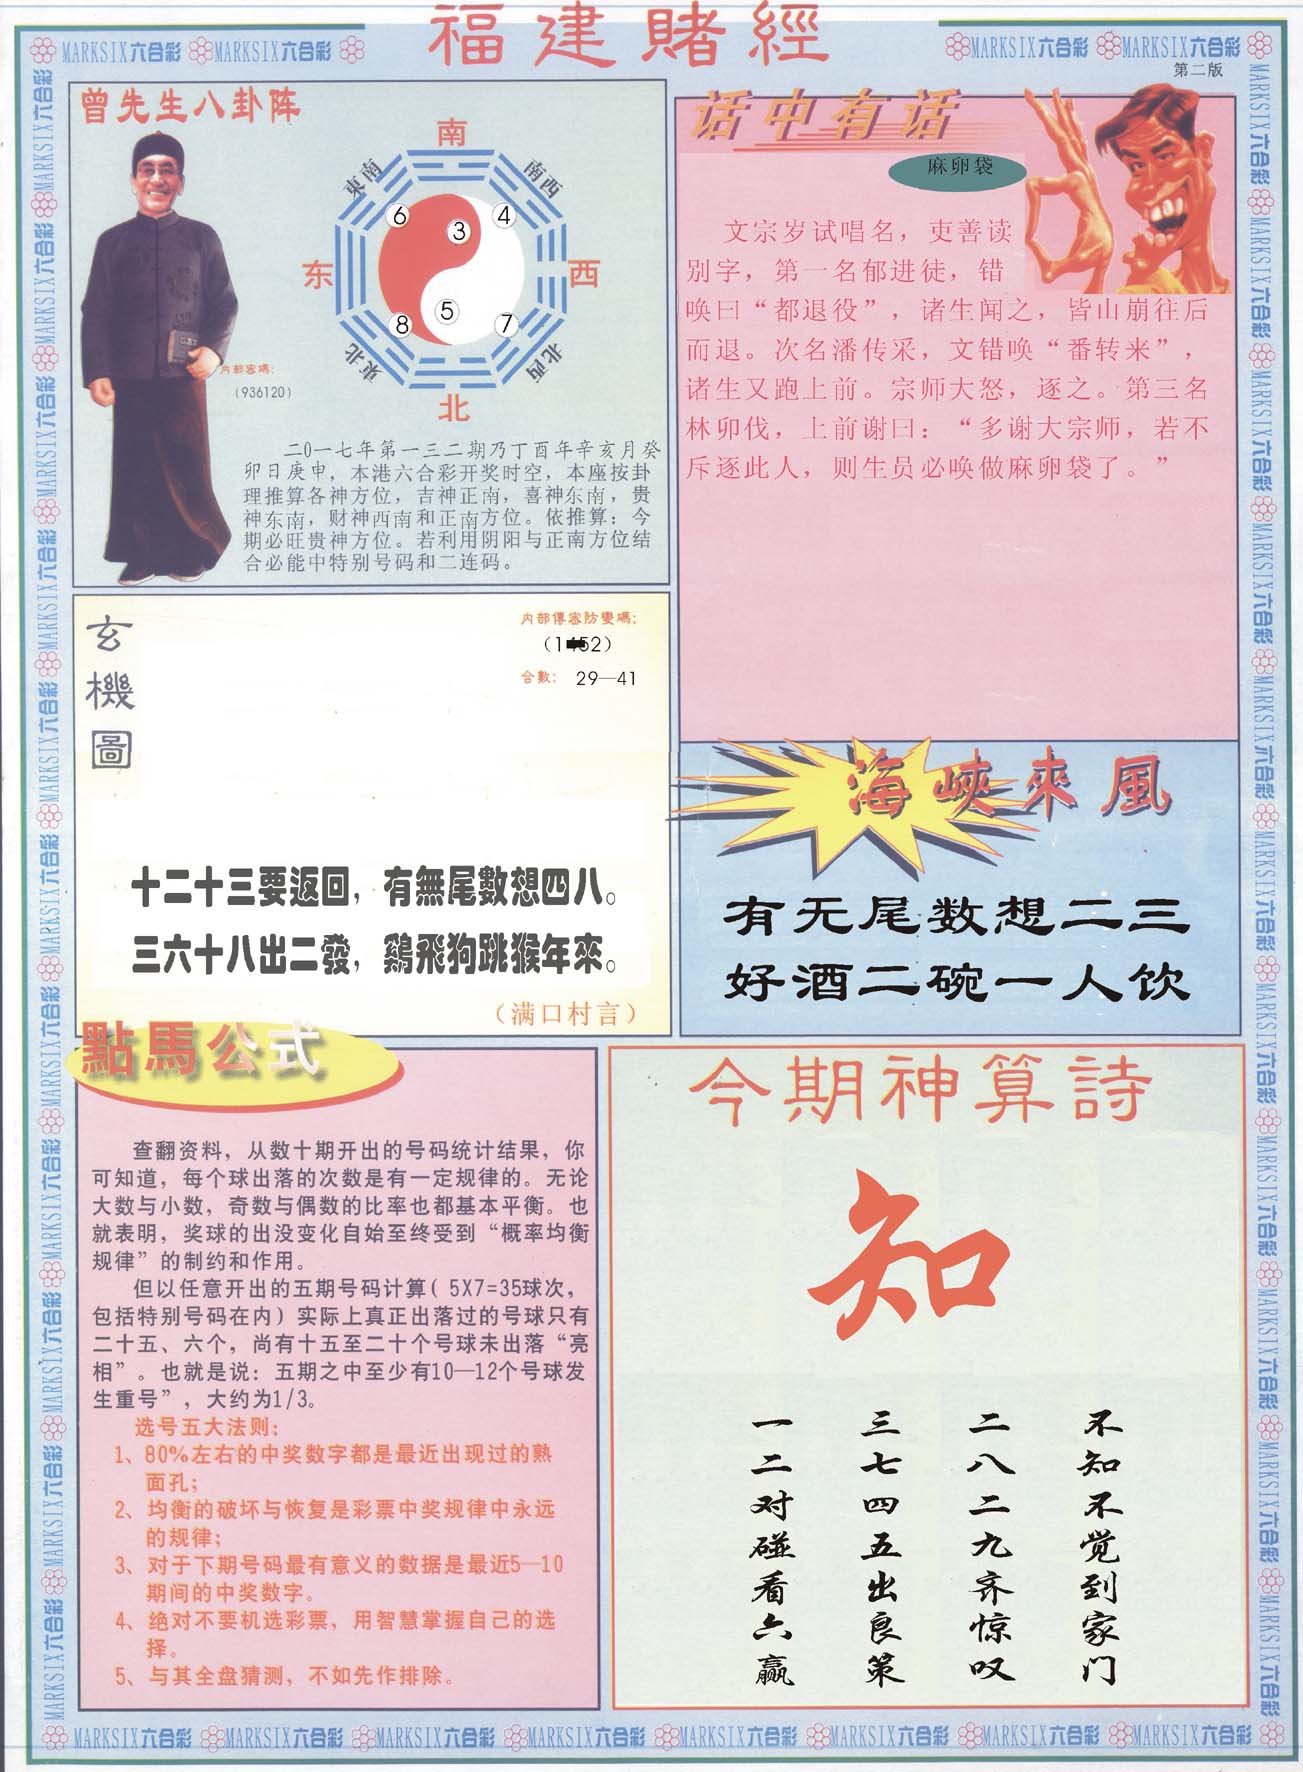 福建賭經
MARKSIX六合彩 MARKSIX六合彩
MARKSIX六合彩 MARKSIX六合彩
第二版
曾先生八卦阵
南
東南
南西
6
3
4
东
西
5
8
7
東北
北西
北
内部密碼:
(936120)
二0一七年第一三二期乃丁酉年辛亥月癸
卯日庚申，本港六合彩开奖时空，本座按卦
理推算各神方位，吉神正南，喜神东南，贵
神东南，财神西南和正南方位。依推算：今
期必旺贵神方位。若利用阴阳与正南方位结
合必能中特别号码和二连码。
话中有话
麻卵袋
文宗岁试唱名，吏善读
别字，第一名郁进徒，错
唤曰“都退役”，诸生闻之，皆山崩往后
而退。次名潘传采，文错唤“番转来”，
诸生又跑上前。宗师大怒，逐之。第三名
林卯伐，上前谢曰：“多谢大宗师，若不
斥逐此人，则生员必唤做麻卵袋了。”
玄機圖
内部傳密防變碼:
合數: 29—41
十二十三要返回，有無尾數想四八。
三六十八出二發，鷄飛狗跳猴年來。
（满口村言）
海峽來風
有无尾数想二三
好酒二碗一人饮
點馬公式
查翻资料，从数十期开出的号码统计结果，你
可知道，每个球出落的次数是有一定规律的。无论
大数与小数，奇数与偶数的比率也都基本平衡。也
就表明，奖球的出没变化自始至终受到“概率均衡
规律”的制约和作用。
但以任意开出的五期号码计算( 5X7=35球次，
包括特别号码在内) 实际上真正出落过的号球只有
二十五、六个，尚有十五至二十个号球未出落“亮
相”。也就是说：五期之中至少有10—12个号球发
生重号”，大约为1/3。
选号五大法则:
1、80%左右的中奖数字都是最近出现过的熟
面孔;
2、均衡的破坏与恢复是彩票中奖规律中永远
的规律;
3、对于下期号码最有意义的数据是最近5—10
期间的中奖数字。
4、绝对不要机选彩票，用智慧掌握自己的选
择。
5、与其全盘猜测，不如先作排除。
今期神算詩
知
不知不觉到家门
二八二九齐惊叹
三七四五出良策
一二对碰看六赢
MARKSIX六合彩 MARKSIX六合彩 MARKSIX六合彩 MARKSIX六合彩 MARKSIX六合彩 MARKSIX六合彩 MARKSIX六合彩 MARKSIX六合彩